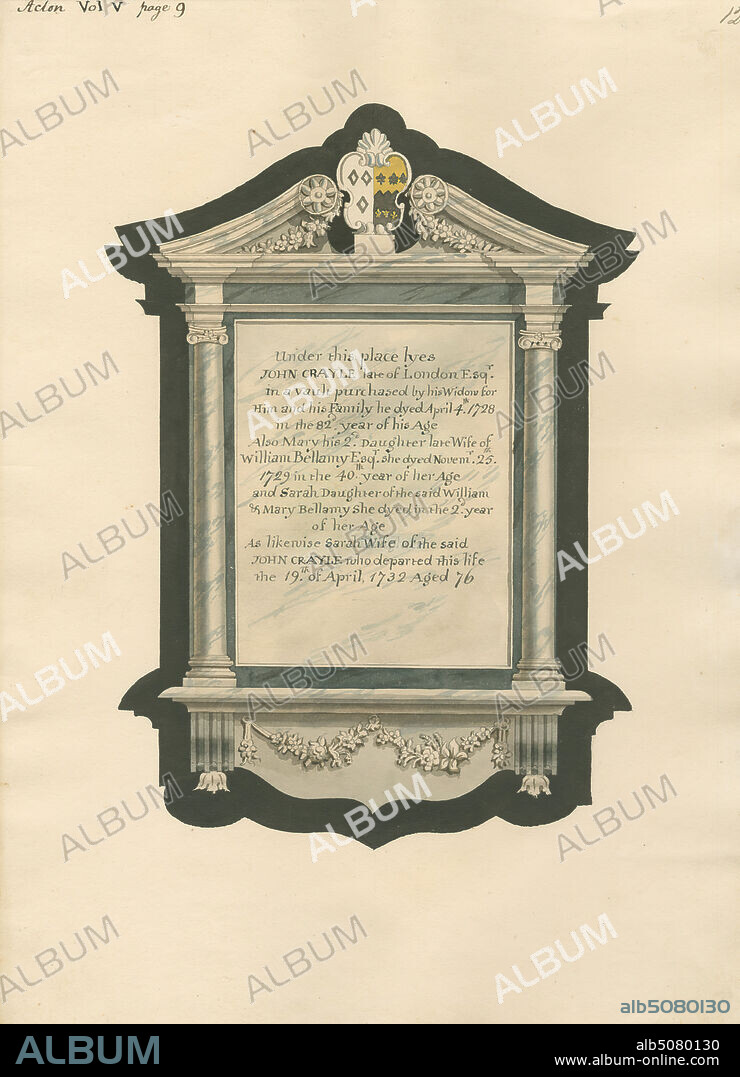 Acton Vol V page 9
Under this place lyes
JOHN CRAYLE late of London Esqr.
in a vault purchased by his Widow for
Him and his Family he dyed April 4th. 1728
in the 82d. year of his Age
Also Mary his 2d. Daughter late Wife of
William Bellamy Esqr. she dyed Novemr. 25th.
1729 in the 40th. year of her Age
and Sarah Daughter of the said William
& Mary Bellamy She dyed in the 2d. year
of her Age
As likewise Sarah Wife of the said
JOHN CRAYLE who departed this life
the 19th. of April, 1732 Aged 76
alb5080130
ALBUM
alb5080130
www.album-online.com